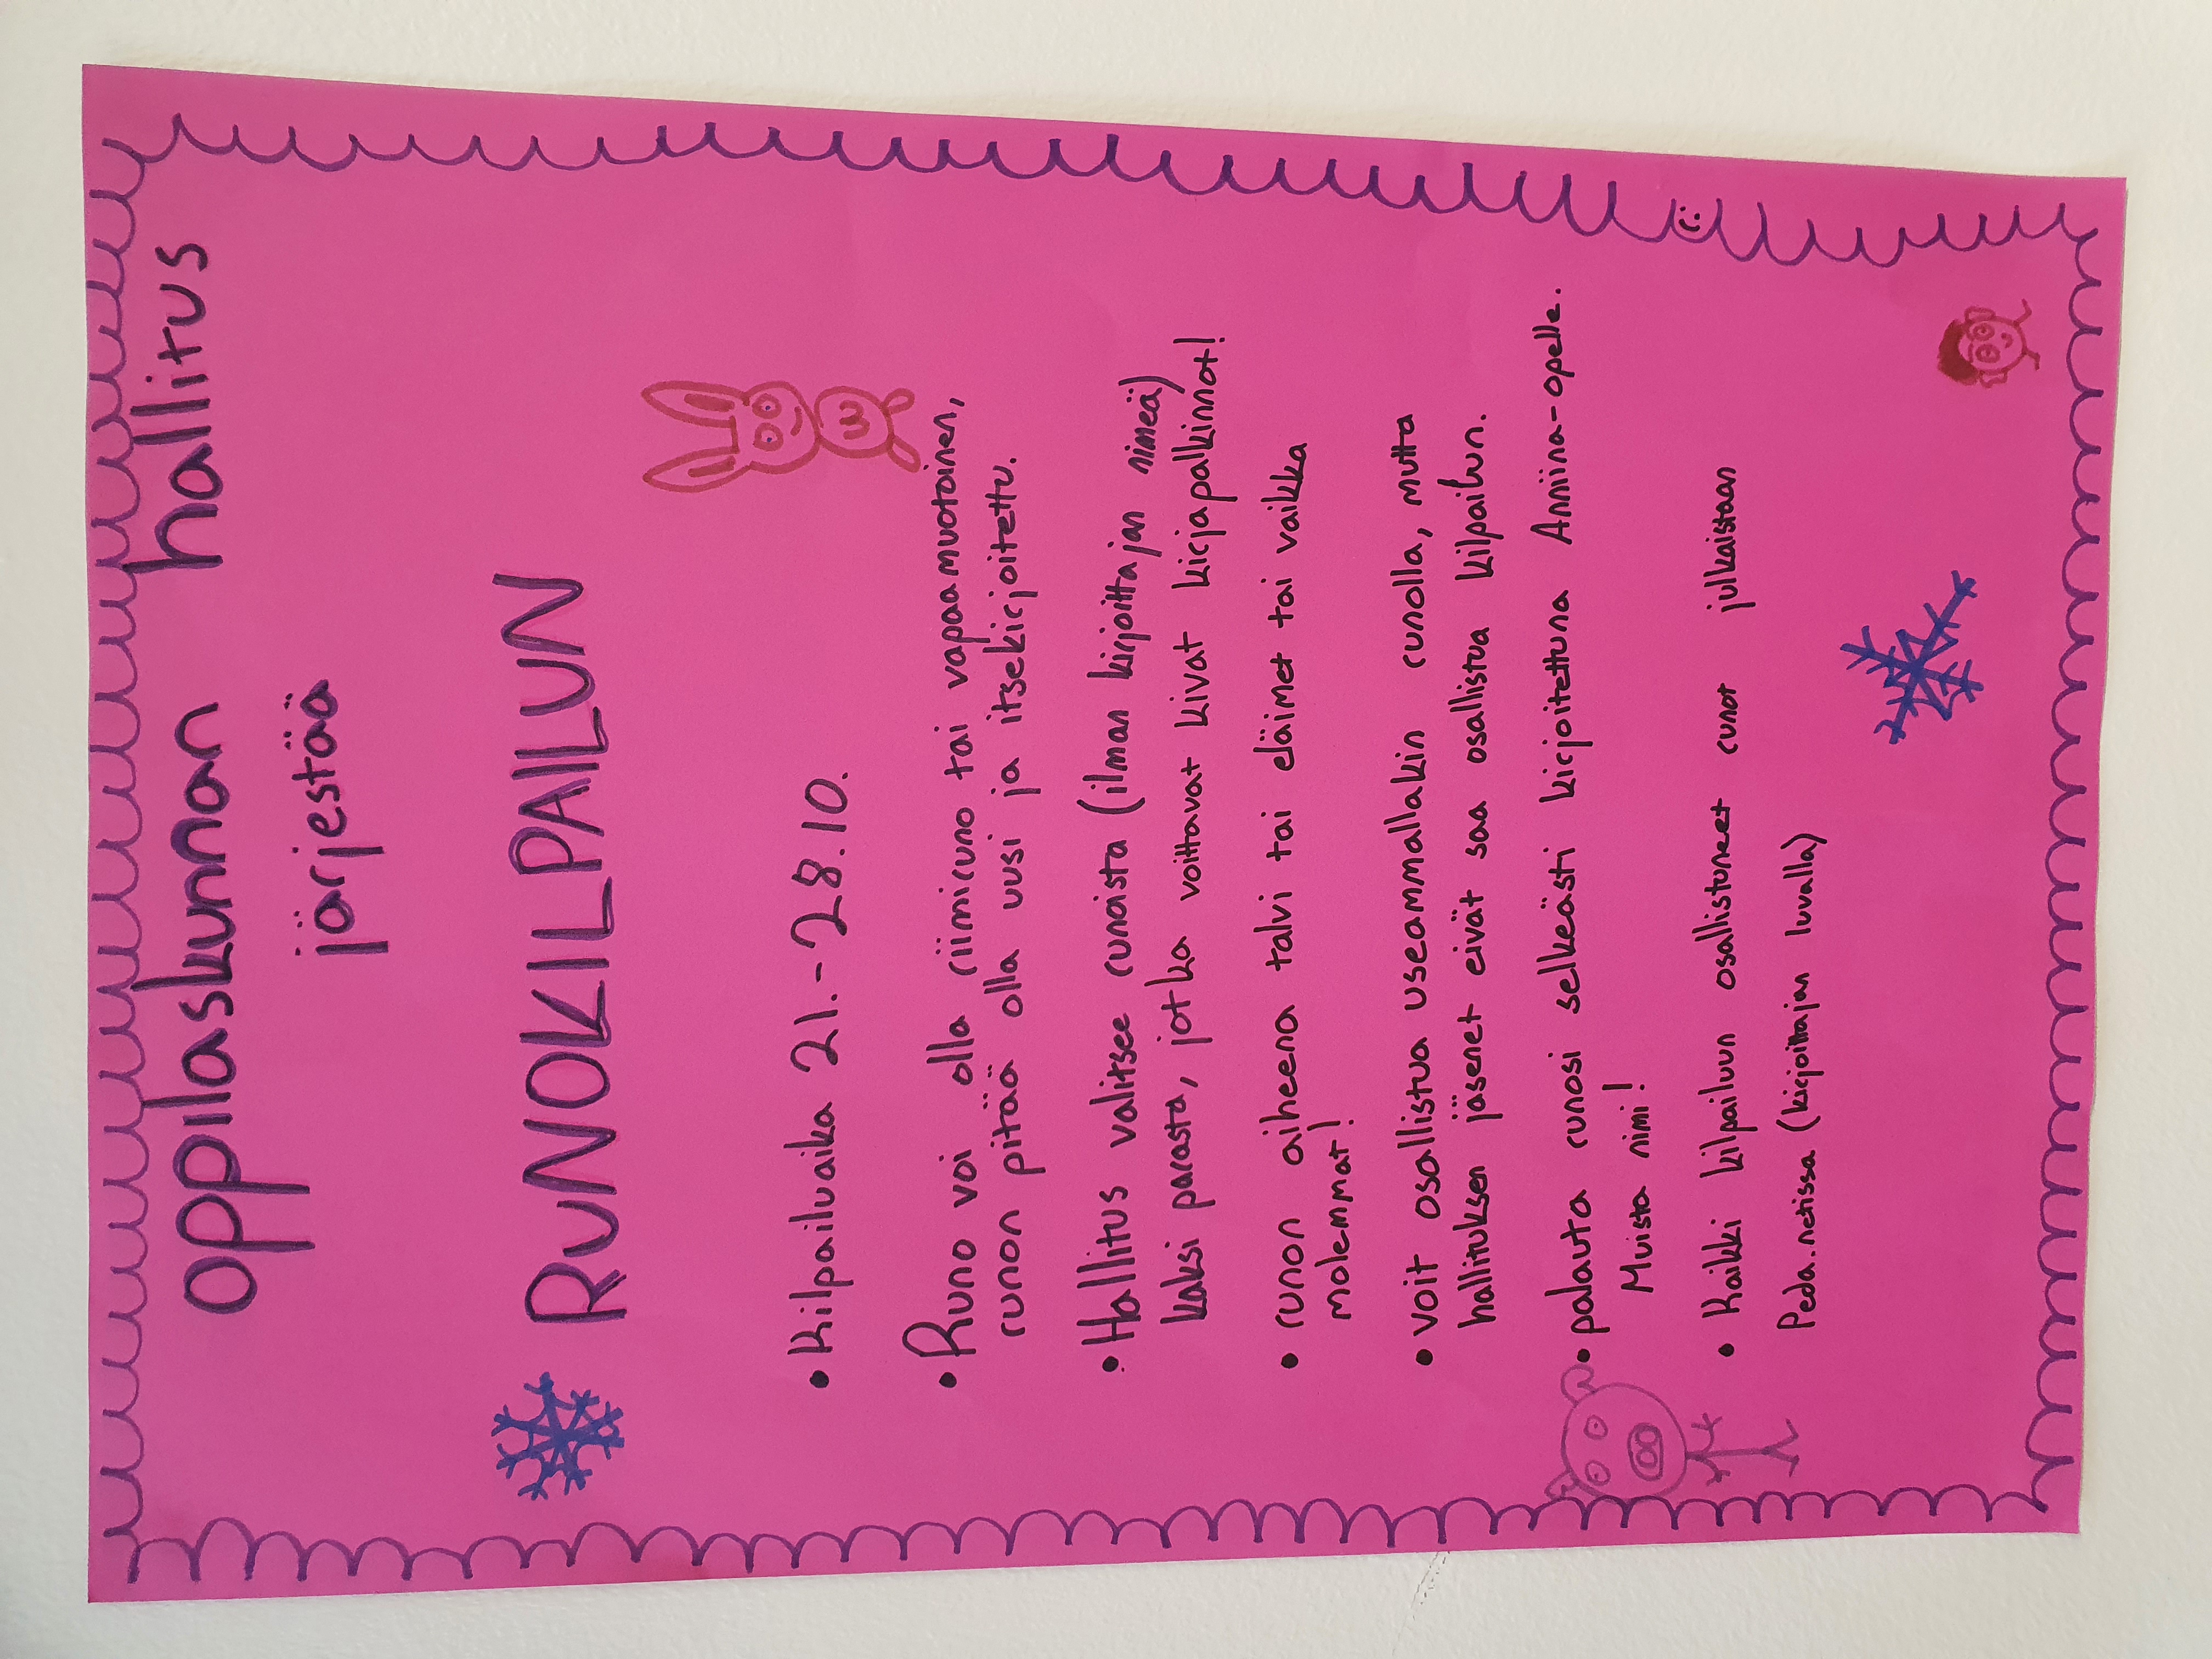 oppilaskunnan hallitus
järjestää
RUNOKILPAILUN
• Kilpailuaika 21.-28.10.
• Runo voi olla riimiruno tai vapaamuotoinen,
runon pitää olla uusi ja itsekirjoitettu.
• Hallitus valitsee runoista (ilman kirjoittajan nimeä)
kaksi parasta, jotka voittavat kivat kirjapalkinnot!
• runon aiheena talvi tai eläimet tai vaikka
molemmat!
• voit osallistua useammallakin runolla, mutta
hallituksen jäsenet eivät saa osallistua kilpailuun.
• palauta runosi selkeästi kirjoitettuna Anniina-opelle.
Muista nimi!
• Kaikki kilpailuun osallistuneet runot julkaistaan
Peda.netissa (kirjoittajan luvalla)